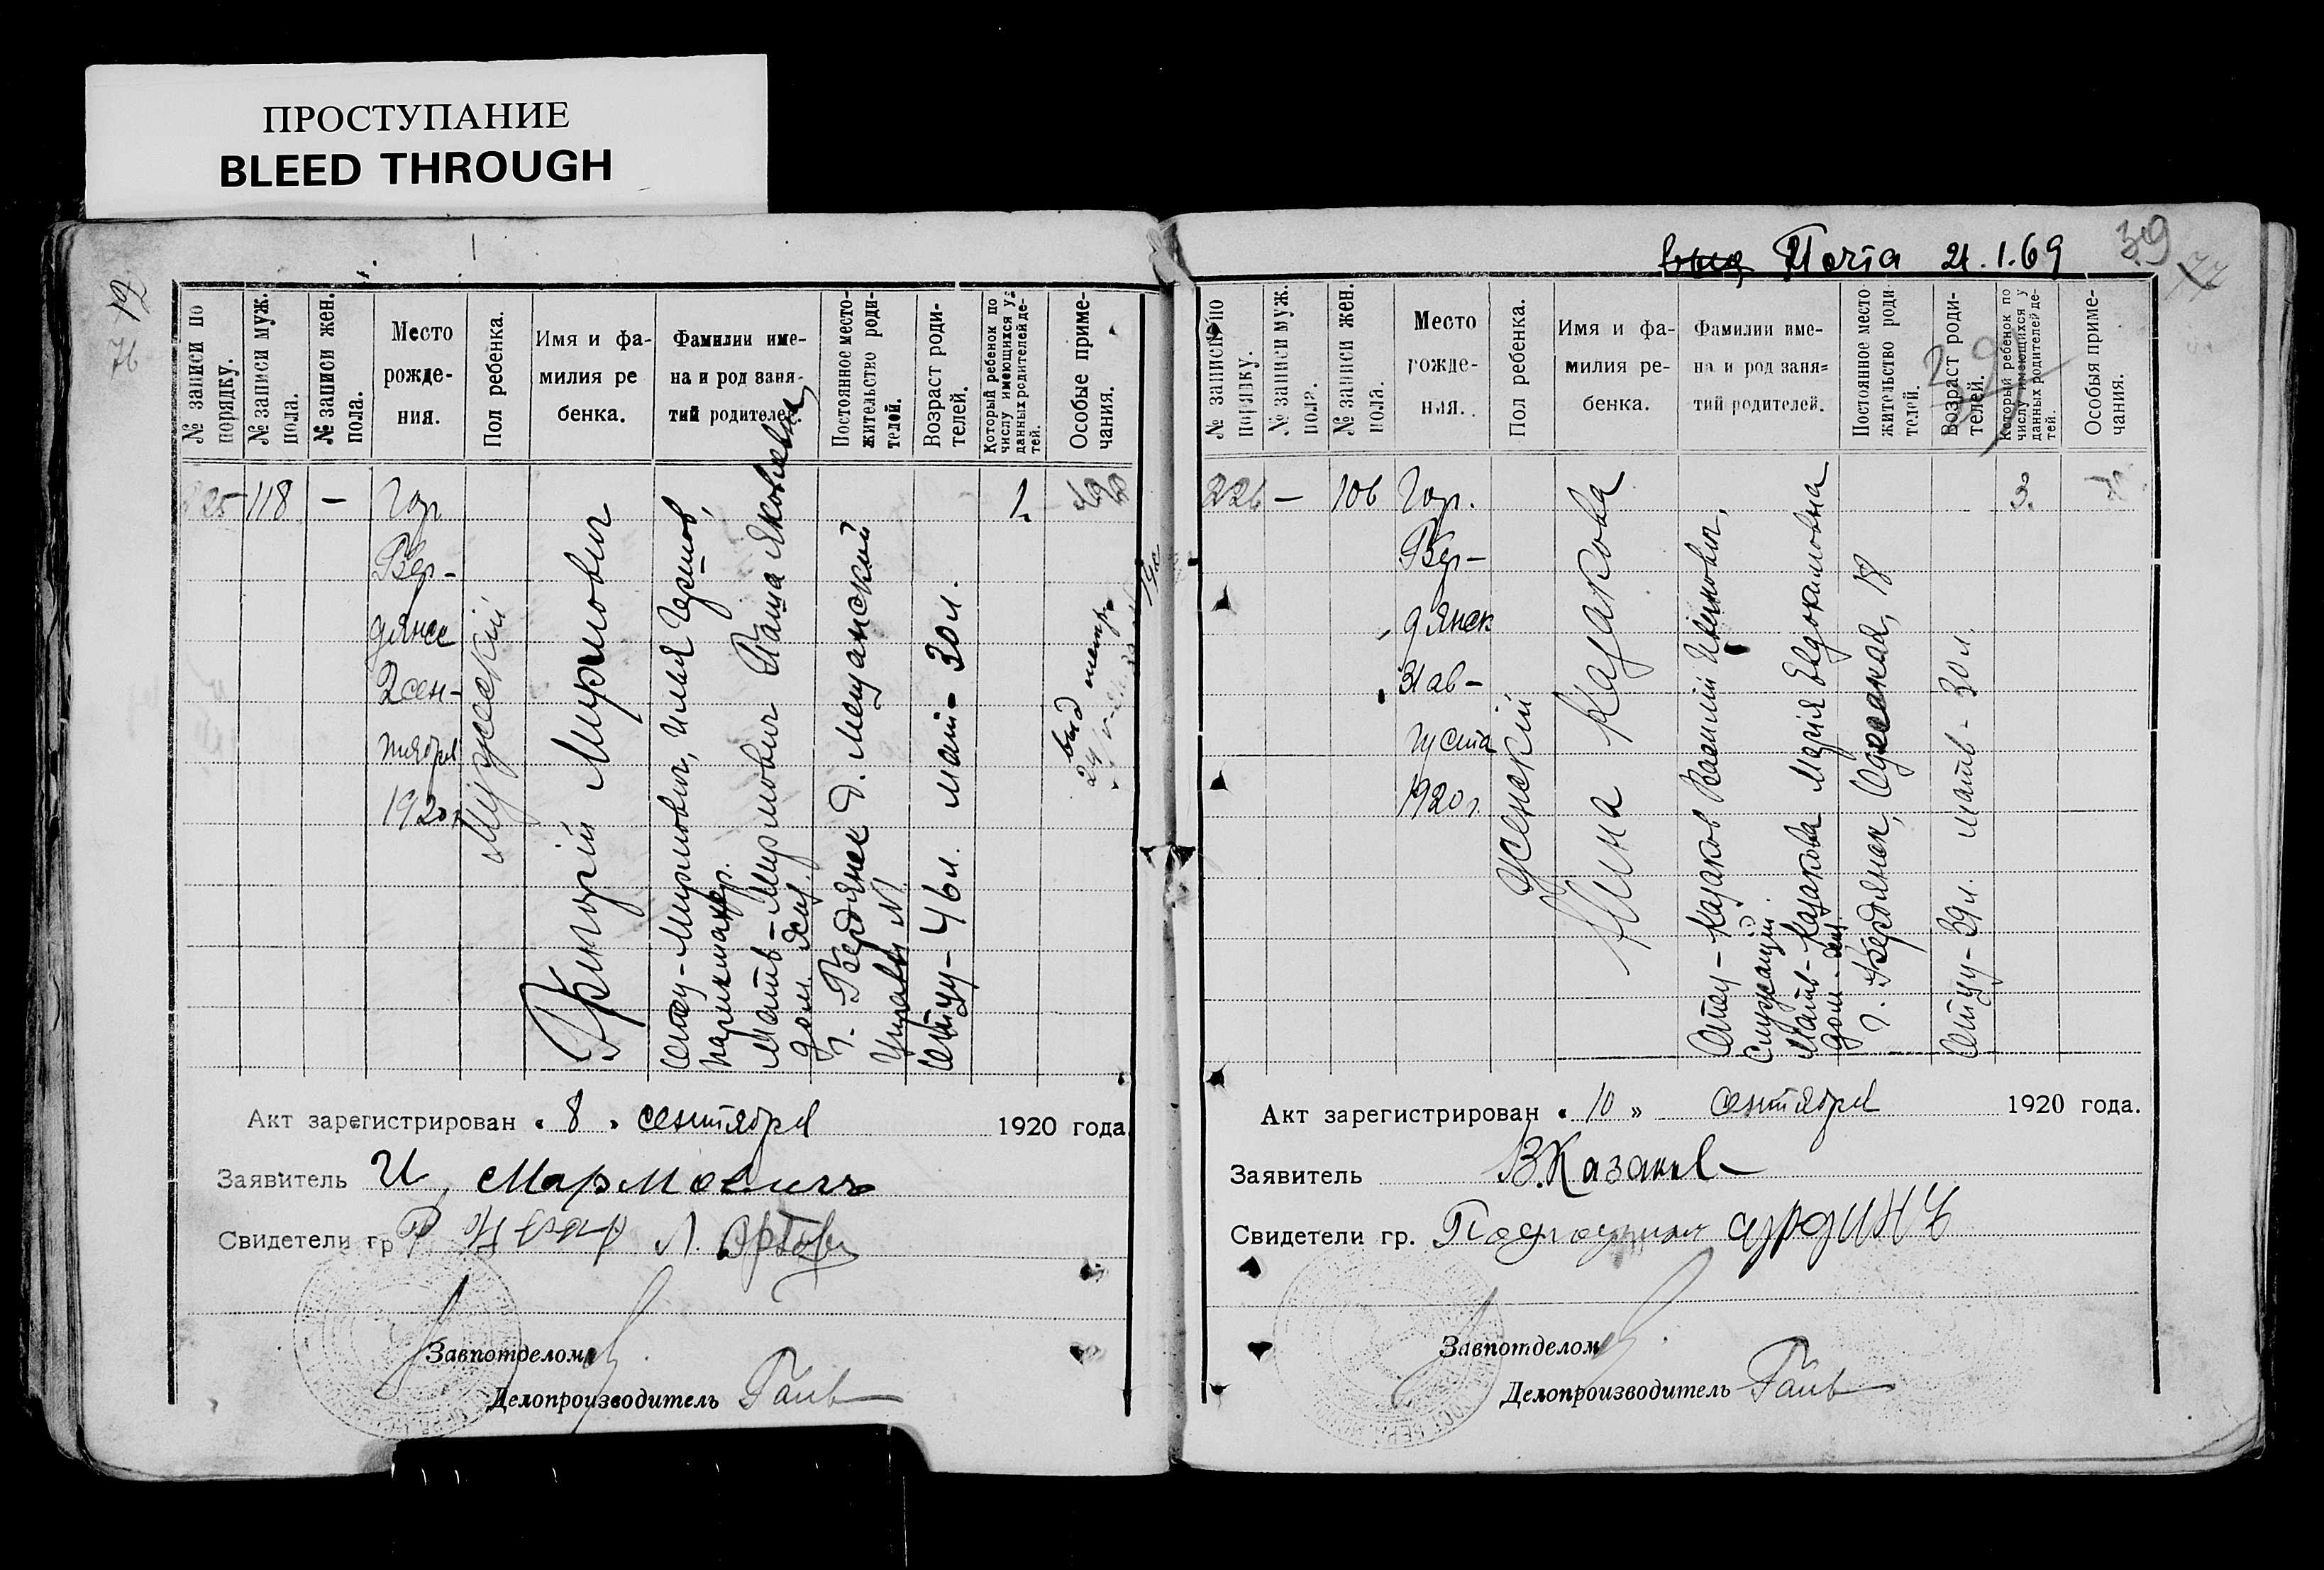 ПРОСТУПАНИЕ
BLEED THROUGH
12
76
№ записи по порядку.
№ записи муж. пола.
№ записи жен. пола.
Место рожде-
ния.
Пол ребенка.
Имя и фа-
милия ре
бенка.
Фамилии име-
на и род заня-
тий родителей
Постоянное место-
жительство роди-
телей.
Возраст роди-
телей.
Который ребенок по
числу имеющихся у
данных родителей де-
тей.
Особые приме-
чания.
225
118
—
Гор
Бер-
дянск
2 сен-
тября
1920 г
Мужский
Григорій Мирмович
Отец - Мирмович, Илья Гершов,
парикмахер.
Мать - Мирмович Паша Яковлевна
дом. хоз.
г. Бердянск
Отцу - 46 л. мат - 30 л.
1.
вид
Акт зарегистрирован „ 8 „ сентября 1920 года
Заявитель И. Мармович
Свидетели гр
Завпотделом
Делопроизводитель
Почта 21.1.69
39
77
№ записи по
порядку.
№ записи муж.
пола.
№ записи жен.
пола.
Место
рожде-
ния.
Пол ребенка.
Имя и фа-
милия ре-
бенка.
Фамилии име-
на и род заня-
тий родителей.
Постоянное место
жительство роди
телей.
Возраст роди-
телей.
Который ребенок по
числу имеющихся у
данных родителей де-
тей.
Особыя приме-
чания.
39
226
—
106
Гор.
Бер-
дянск
31 ав-
густа
1920 г.
Женский
Нина Казакова
Отец - Казаков Василий Иванович,
служащий.
Мать - Казакова Мария Евдокимовна
дом. хоз.
г. Бердянск, Одесская, 18
Отцу - 39 л. мать - 30 л.
3.
Акт зарегистрирован „ 10 „ сентября 1920 года.
Заявитель В. Казаков
Свидетели гр.
Завпотделом
Делопроизводитель